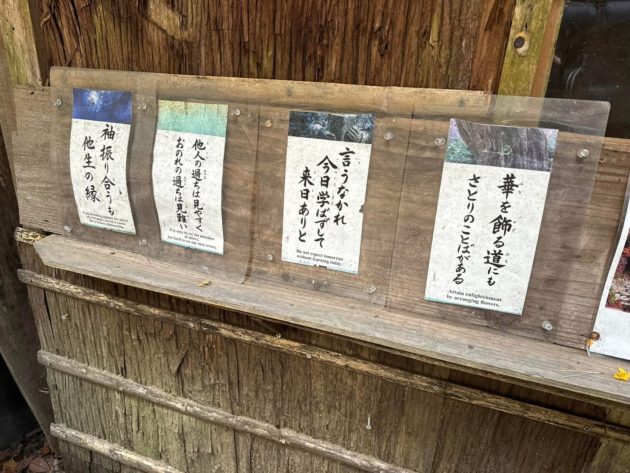 袖振り合うも
他生の縁
他人の過ちは見やすく
おのれの過ちは見難い
It is easy to see the mistakes
of others,
but hard to see our own errors.
言うなかれ
今日学ばずして
来日ありと
Do not expect tomorrow
without learning today.
華を飾る道にも
さとりのことばがある
Attain enlightenment
by arranging flowers.